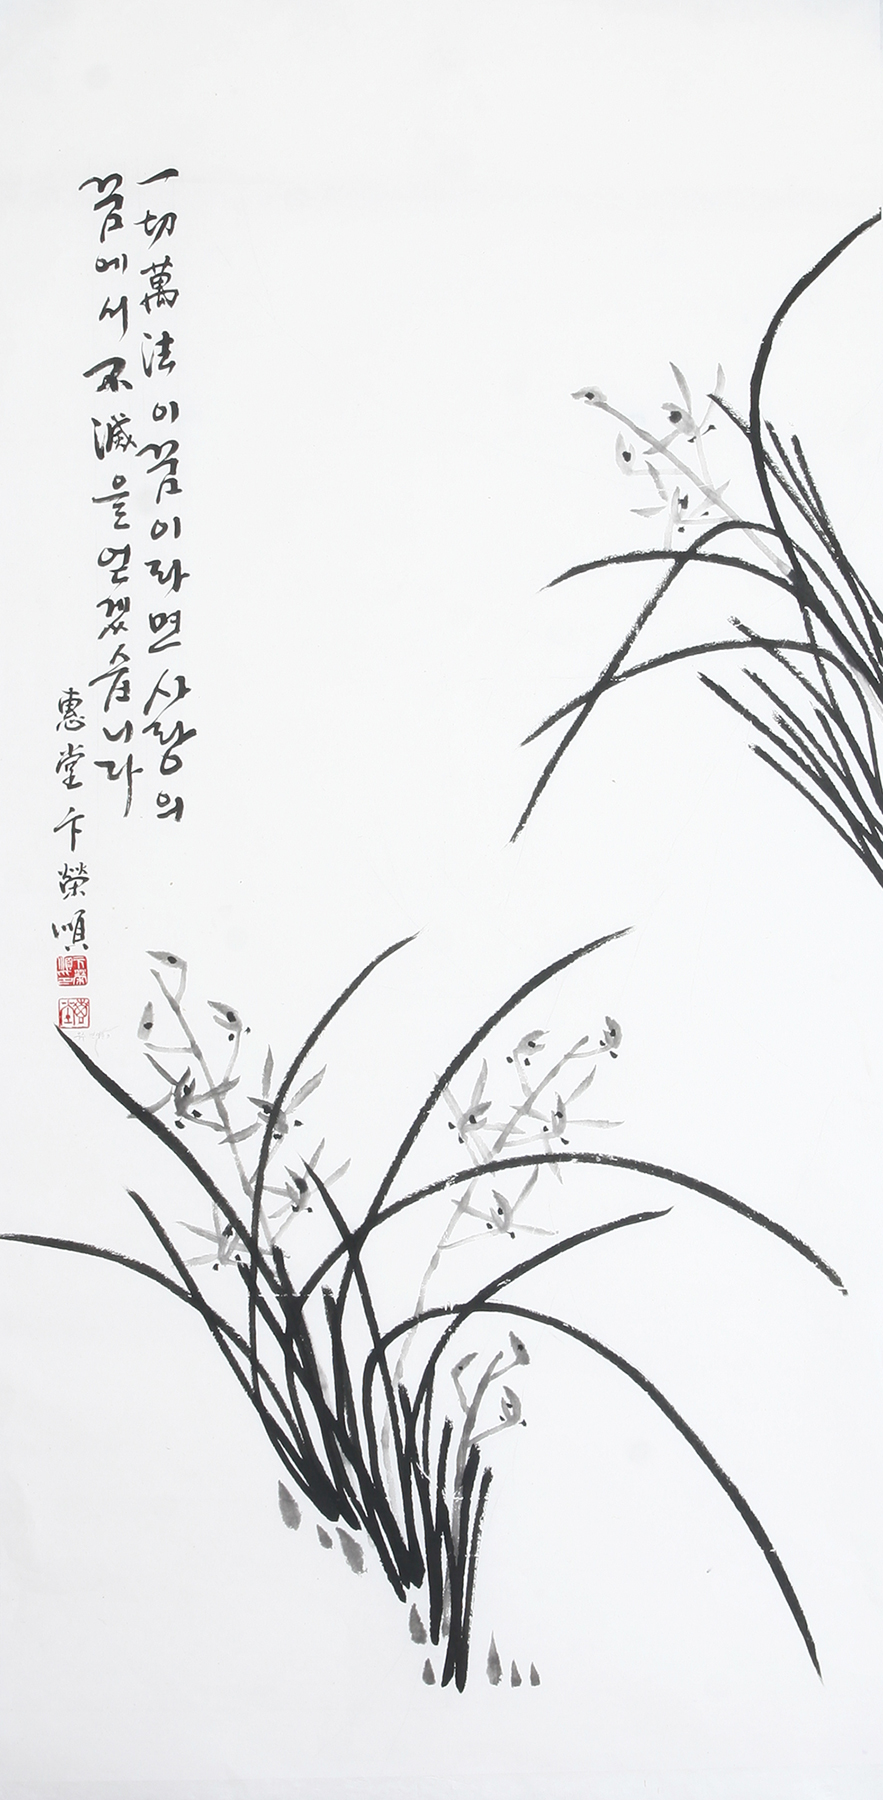 一切萬法이꿈이라면사랑의
꿈에서不滅을얻겠습니다
惠堂卞榮順